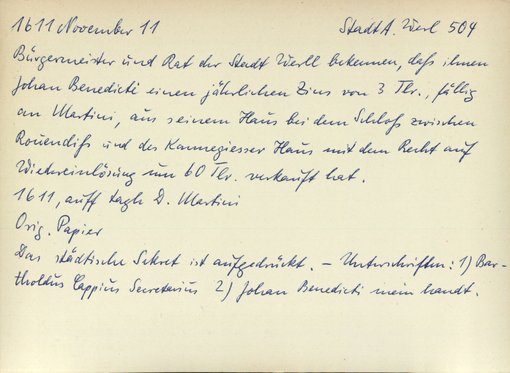 1611 November 11 StadtA. Werl 504
Bürgermeister und Rat der Stadt Werll bekennen, daß ihnen
Johan Benedicti einen jährlichen Zins von 3 Tlr., fällig
an Martini, aus seinem Haus bei dem Schloß zwischen
Rouendißs und des Kannegiesser Haus mit dem Recht auf
Wiedereinlösung um 60 Tlr. verkauft hat.
1611, auff tagh D. Martini
Orig. Papier
Das städtische Sekret ist aufgedrückt. – Unterschriften: 1) Bar-
tholdus Cappius Secretarius 2) Johan Benedicti mein handt.